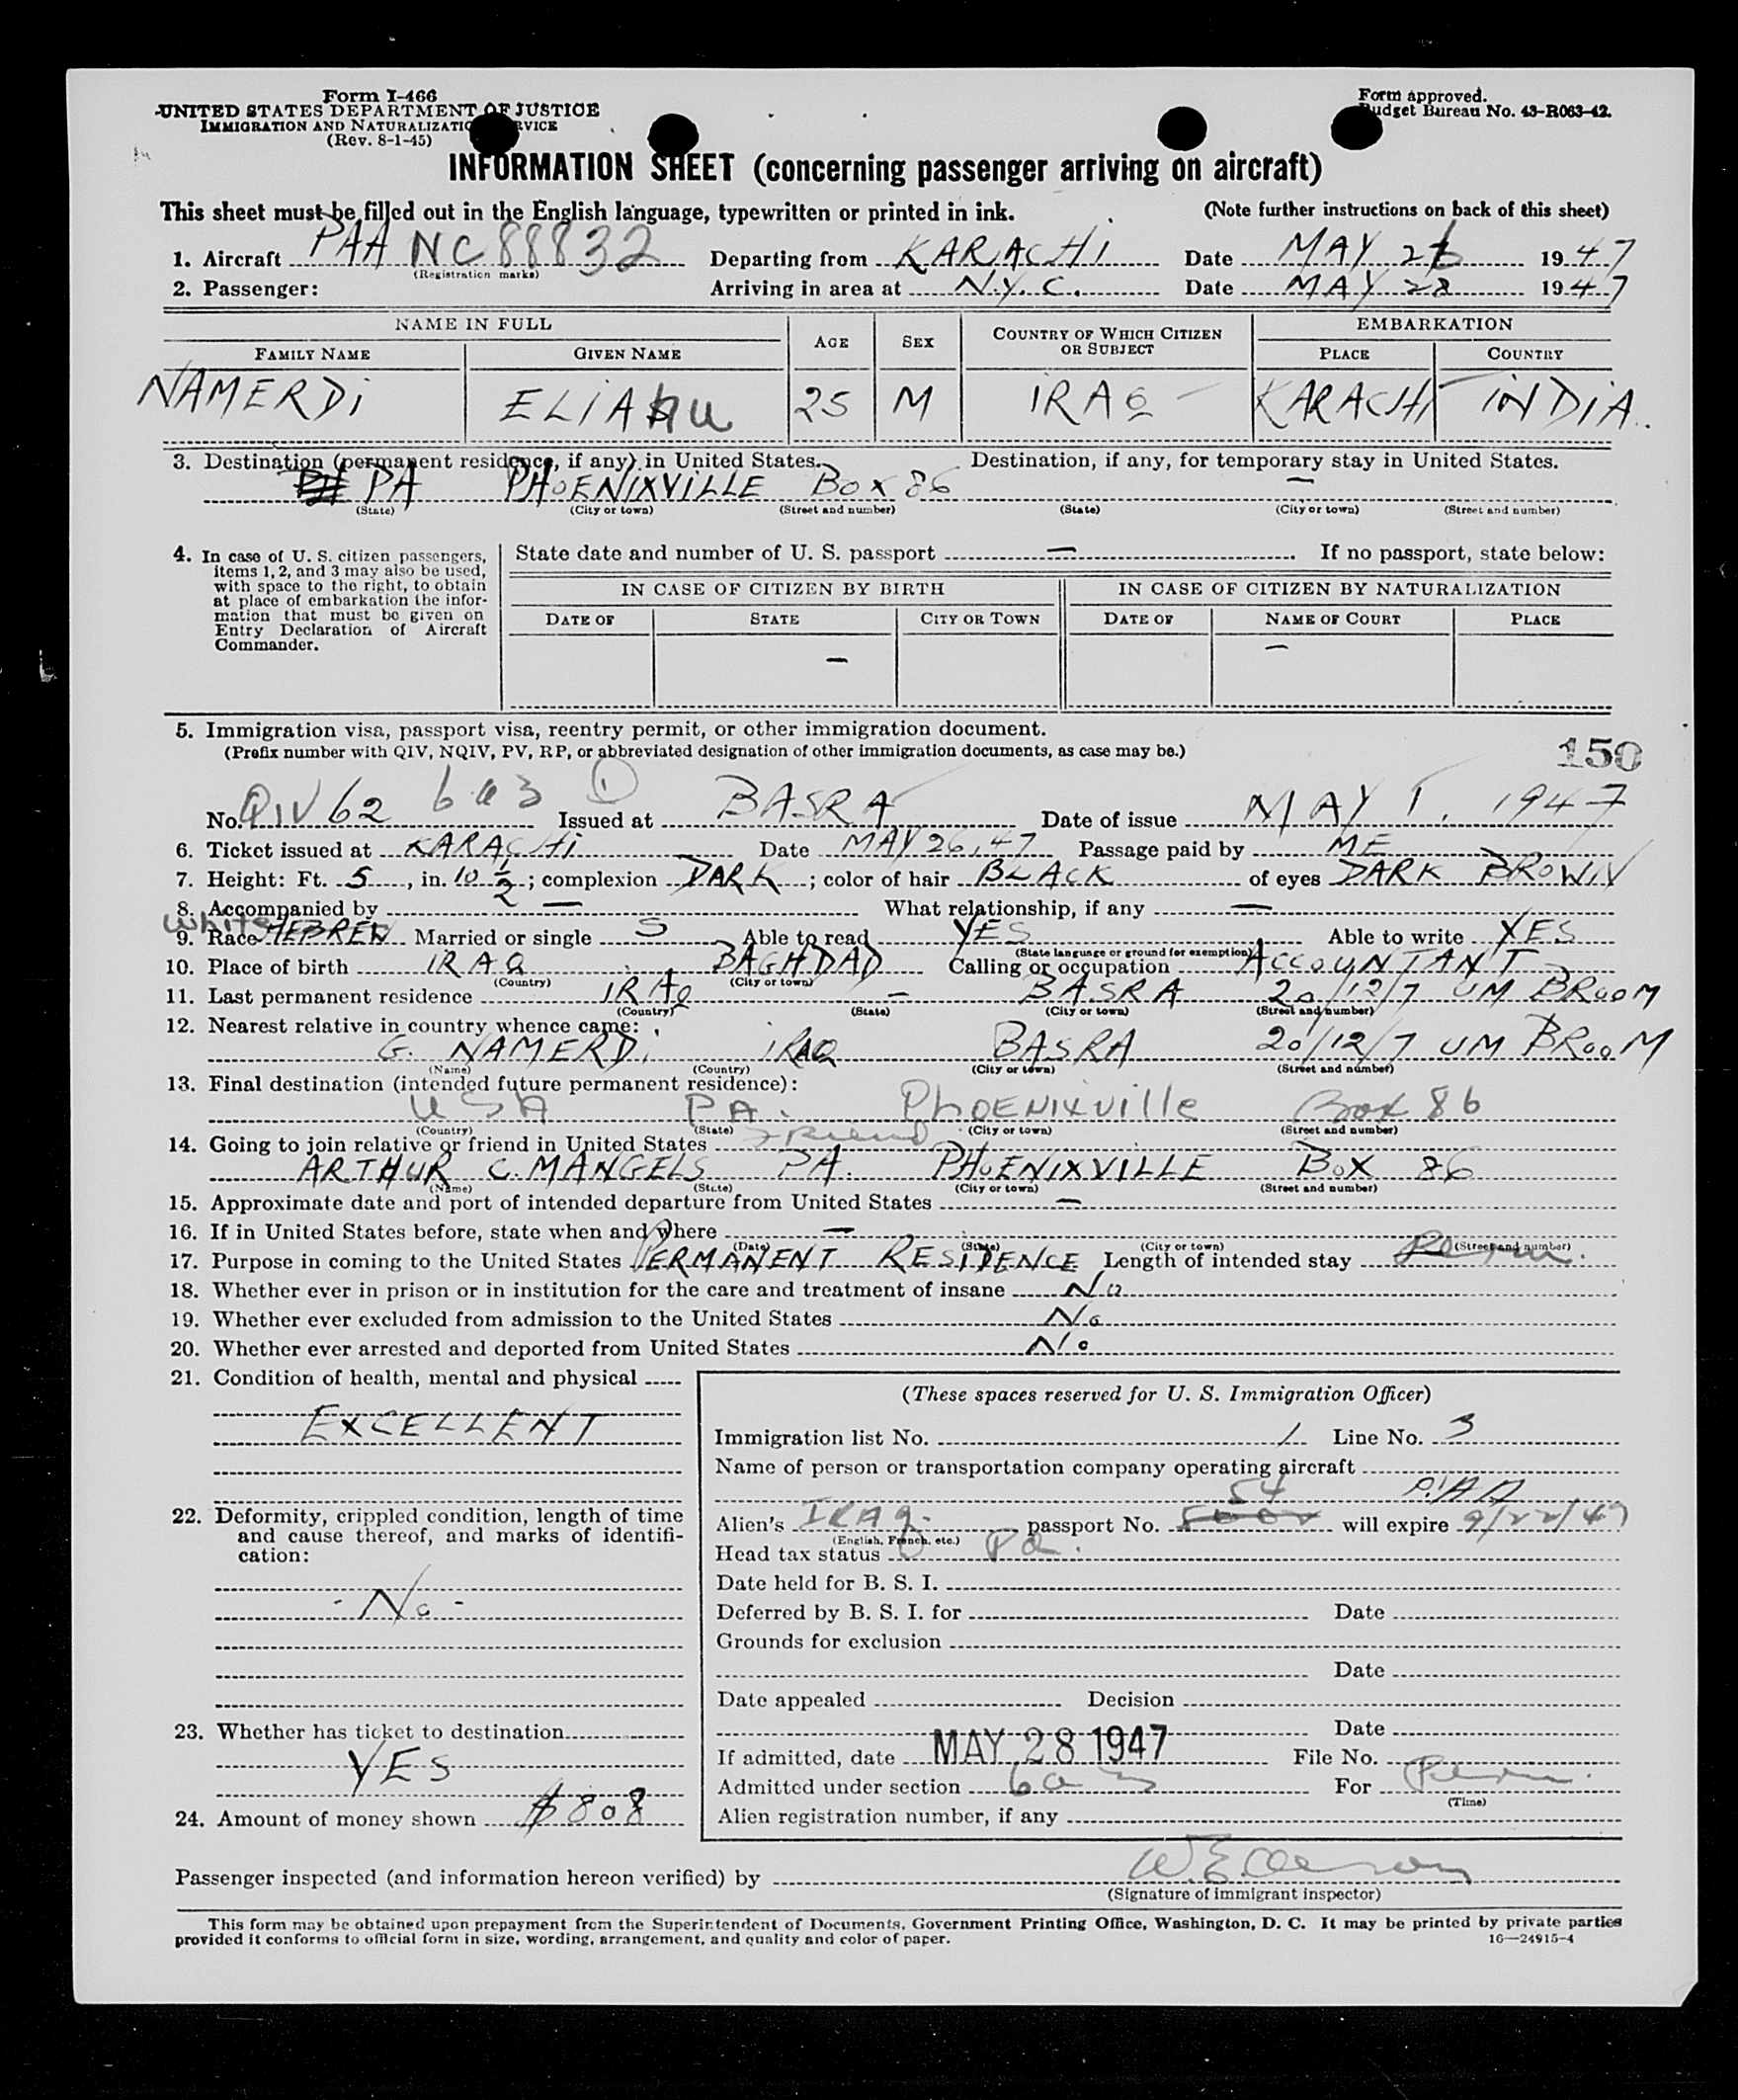 Form I-466
UNITED STATES DEPARTMENT OF JUSTICE
IMMIGRATION AND NATURALIZATION SERVICE
(Rev. 8-1-45)
Form approved.
Budget Bureau No. 43-R063-42.
INFORMATION SHEET (concerning passenger arriving on aircraft)
This sheet must be filled out in the English language, typewritten or printed in ink. (Note further instructions on back of this sheet)
1. Aircraft PAA NC 88832 Departing from KARACHI Date MAY 26 1947
(Registration marks)
2. Passenger: Arriving in area at N.Y.C. Date MAY 28 1947
NAME IN FULL AGE SEX COUNTRY OF WHICH CITIZEN OR SUBJECT EMBARKATION
FAMILY NAME GIVEN NAME PLACE COUNTRY
NAMERDI ELIAHU 25 M IRAQ KARACHI INDIA
3. Destination (permanent residence, if any) in United States. Destination, if any, for temporary stay in United States.
PA PHOENIXVILLE BOX 86 —
(State) (City or town) (Street and number) (State) (City or town) (Street and number)
4. In case of U. S. citizen passengers, items 1, 2, and 3 may also be used, with space to the right, to obtain at place of embarkation the information that must be given on Entry Declaration of Aircraft Commander.
State date and number of U. S. passport — If no passport, state below:
IN CASE OF CITIZEN BY BIRTH IN CASE OF CITIZEN BY NATURALIZATION
DATE OF STATE CITY OR TOWN DATE OF NAME OF COURT PLACE
— —
5. Immigration visa, passport visa, reentry permit, or other immigration document.
(Prefix number with QIV, NQIV, PV, RP, or abbreviated designation of other immigration documents, as case may be.)
150
No. QIV 62 6a3 1 Issued at BASRA Date of issue MAY 1, 1947
6. Ticket issued at KARACHI Date MAY 26, 47 Passage paid by ME
7. Height: Ft. 5, in. 10 1/2; complexion DARK; color of hair BLACK of eyes DARK BROWN
8. Accompanied by — What relationship, if any —
White
9. Race HEBREW Married or single S Able to read YES Able to write YES
(State language or ground for exemption)
10. Place of birth IRAQ BAGHDAD Calling or occupation ACCOUNTANT
(Country) (City or town)
11. Last permanent residence IRAQ — BASRA 20/12/7 UM BROOM
(Country) (State) (City or town) (Street and number)
12. Nearest relative in country whence came:
G. NAMERDI IRAQ BASRA 20/12/7 UM BROOM
(Name) (Country) (City or town) (Street and number)
13. Final destination (intended future permanent residence):
USA PA. PHOENIXVIlle Box 86
(Country) (State) (City or town) (Street and number)
14. Going to join relative or friend in United States Friend
ARTHUR C. MANGELS PA. PHOENIXVILLE BOX 86
(Name) (State) (City or town) (Street and number)
15. Approximate date and port of intended departure from United States —
16. If in United States before, state when and where —
(Date) (State) (City or town) (Street and number)
17. Purpose in coming to the United States PERMANENT RESIDENCE Length of intended stay Perm.
18. Whether ever in prison or in institution for the care and treatment of insane No
19. Whether ever excluded from admission to the United States No
20. Whether ever arrested and deported from United States No
21. Condition of health, mental and physical
EXCELLENT
22. Deformity, crippled condition, length of time and cause thereof, and marks of identification:
- No -
23. Whether has ticket to destination
YES
24. Amount of money shown $808
(These spaces reserved for U. S. Immigration Officer)
Immigration list No. 1 Line No. 3
Name of person or transportation company operating aircraft
P.A.A
54
Alien's IRAQ. passport No. will expire 9/22/47
(English, French, etc.)
Head tax status Pd.
Date held for B. S. I.
Deferred by B. S. I. for Date
Grounds for exclusion
Date
Date appealed Decision
Date
If admitted, date MAY 28 1947 File No.
Admitted under section 6a3 For Perm.
(Time)
Alien registration number, if any
Passenger inspected (and information hereon verified) by
(Signature of immigrant inspector)
This form may be obtained upon prepayment from the Superintendent of Documents, Government Printing Office, Washington, D. C. It may be printed by private parties
provided it conforms to official form in size, wording, arrangement, and quality and color of paper. 16—24915-4